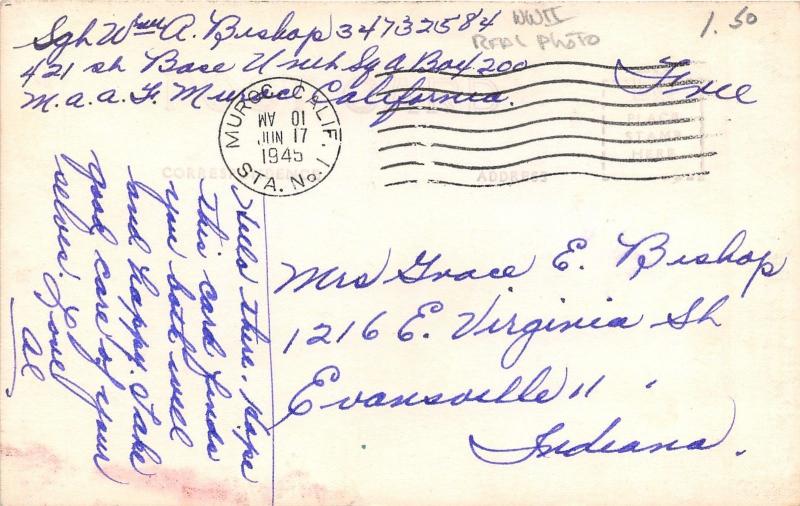 Sgt Wm A. Bishop 34732584
421 st Base Unit Sq A Box 200
M.a.a.F. Muroc California.
Free
WWII
REAL PHOTO
1.50
MUROC, CALIF. 1
10 AM
JUN 17
1945
STA. No.
PLACE
STAMP
HERE
CORRESPONDENCE
ADDRESS
Hello there. Hope
this card finds
you both well
and happy. Take
good care of your
selves. Love
Al
Mrs Grace E. Bishop
1216 E. Virginia St
Evansville 11,
Indiana.